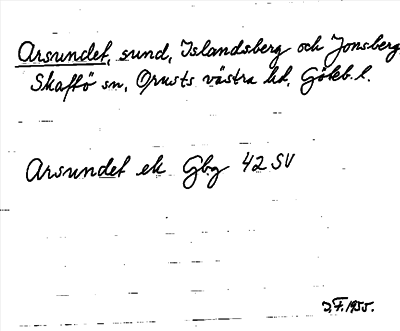 Arsundet, sund, Islandsberg och Jonsberg
Skaftö sn, Orusts västra hd, Göteb. l.
Arsundet ek Gbg 42 SV
J.F. 1955.